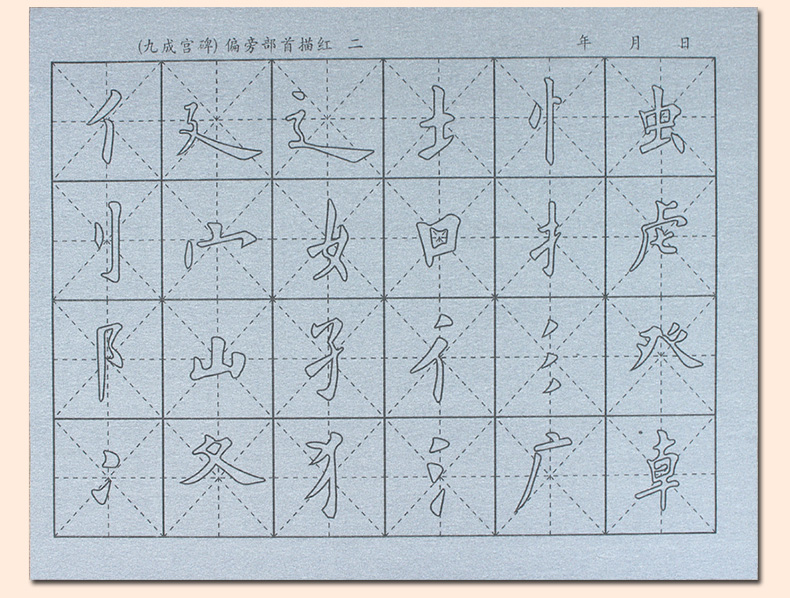 (九成宫碑) 偏旁部首描红 二 年 月 日
亻 廴 辶 土 忄 虫
刂 宀 女 回 扌 虍
阝 山 子 彳 氵 癶
冫 夂 犭 氵 广 卓